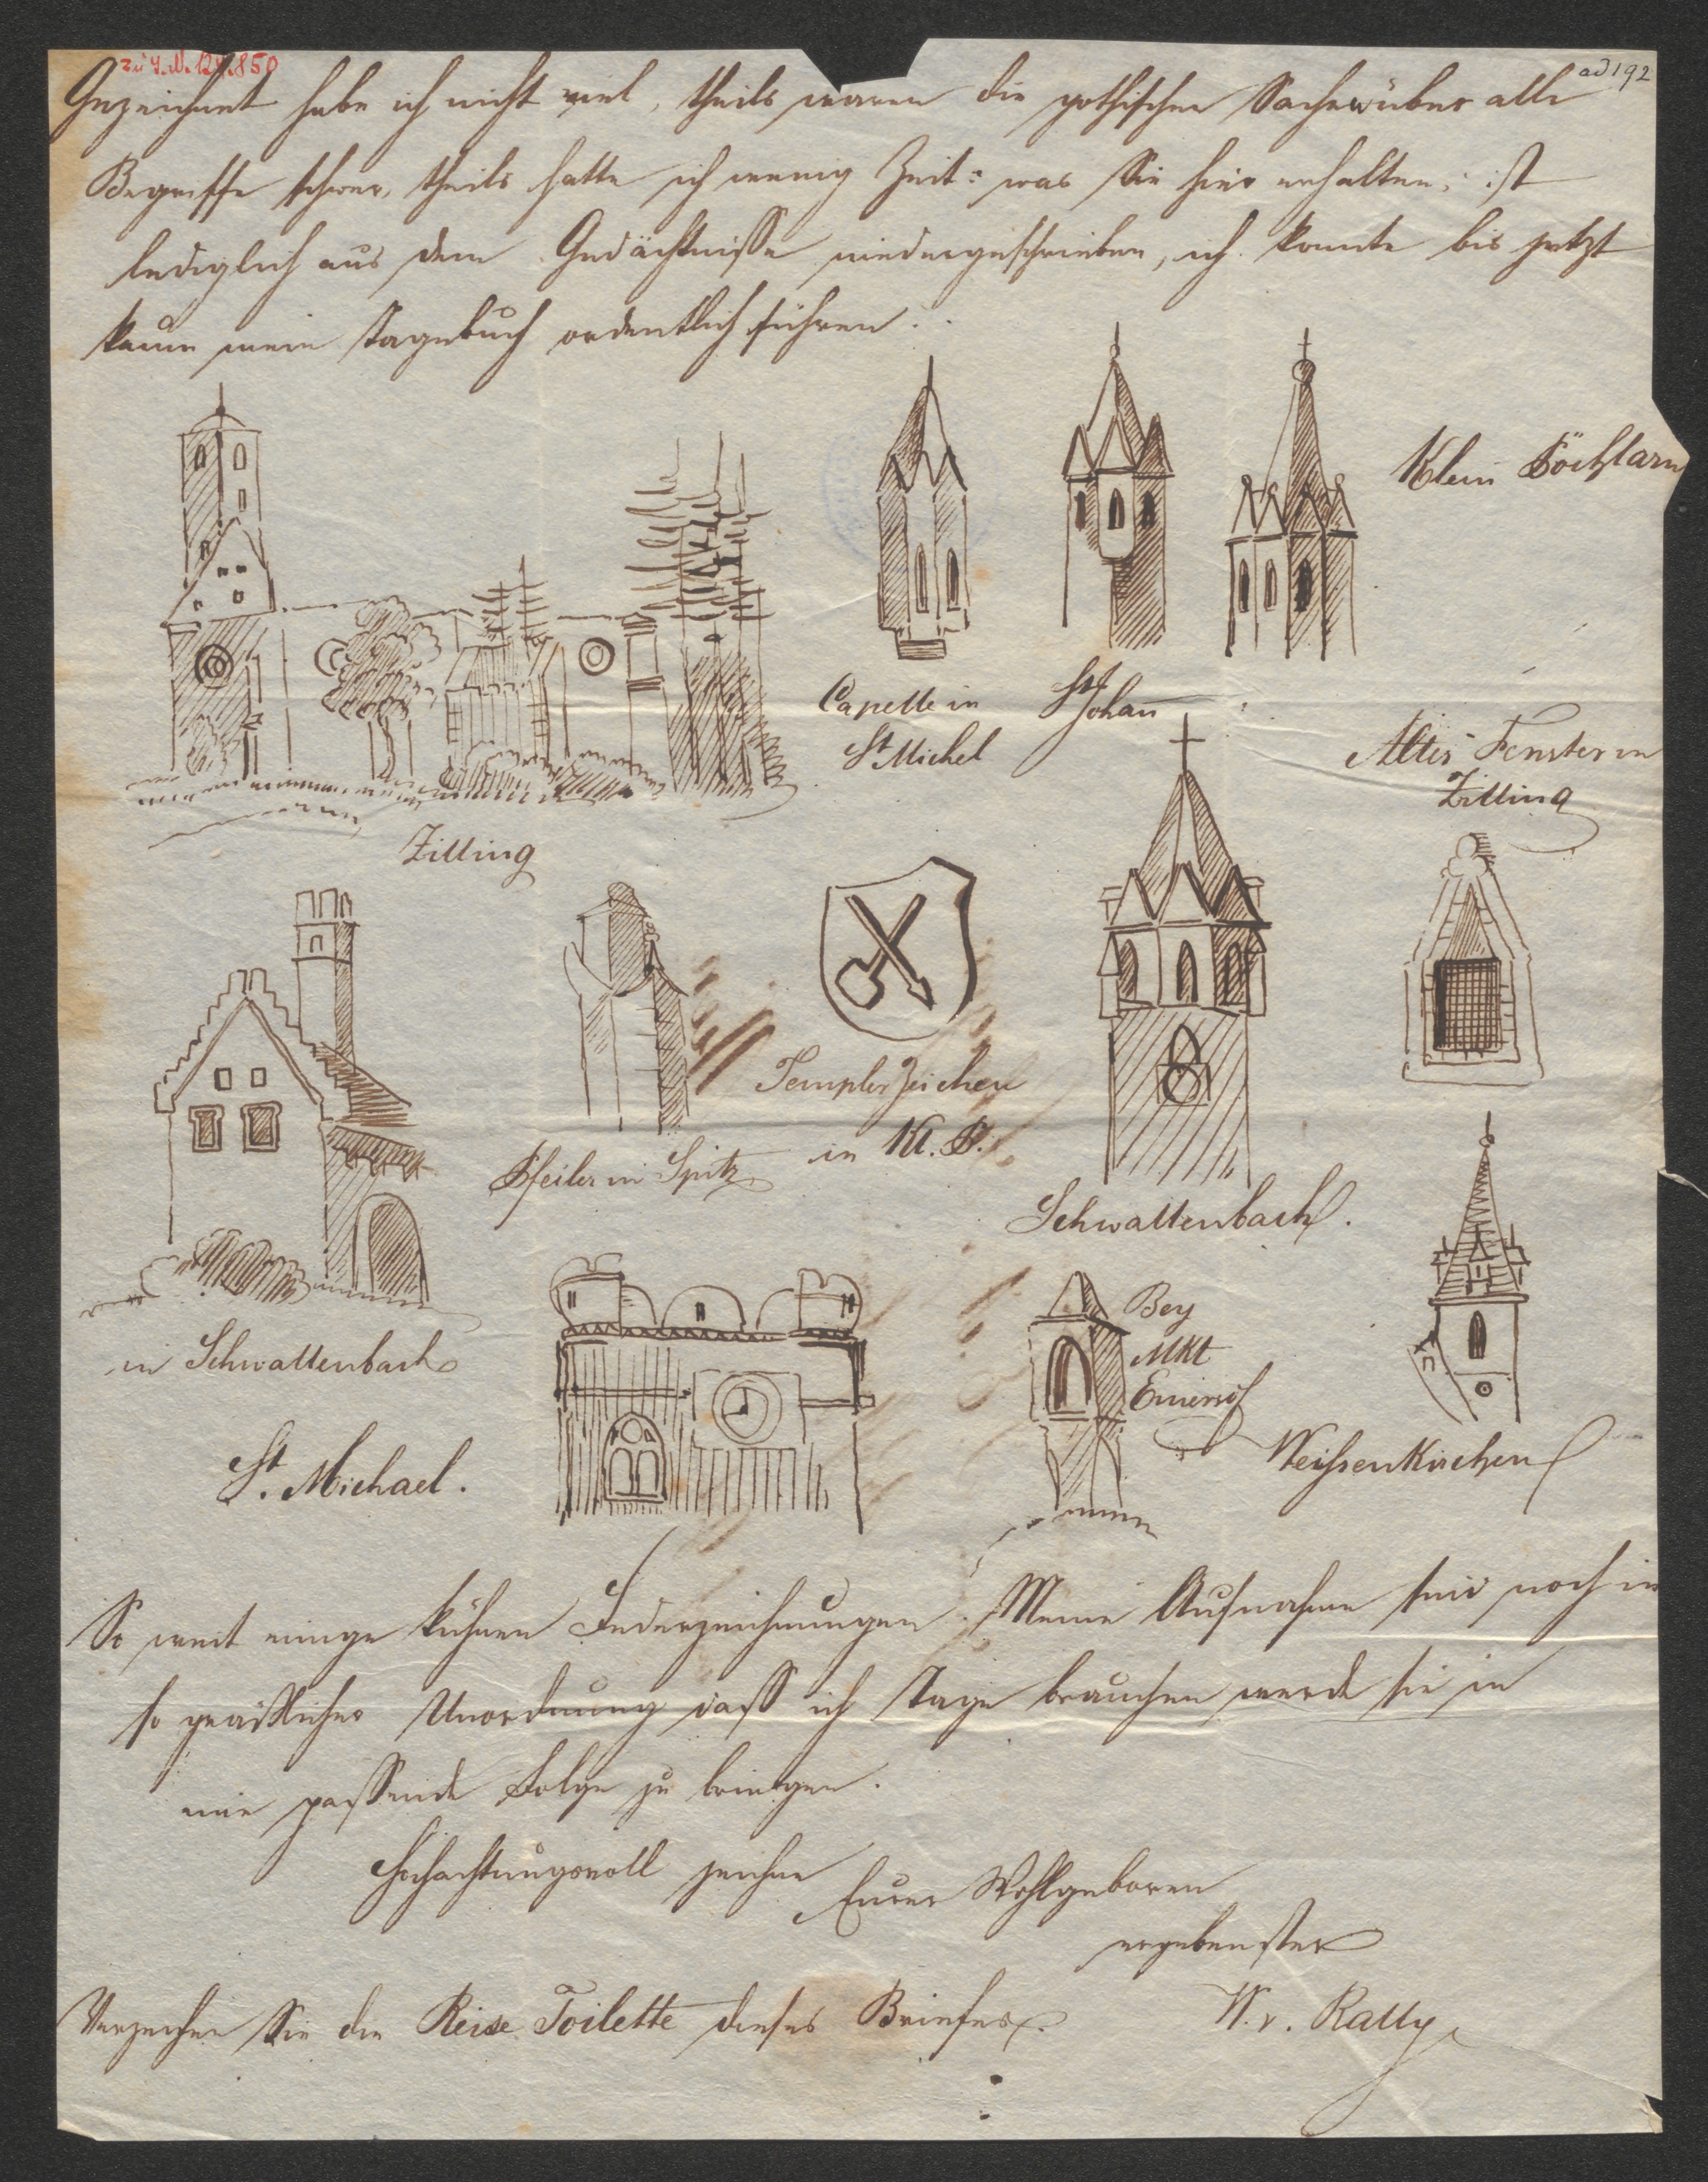 zu I.N. 124.850
ad 192
Gezeichnet habe ich nicht viel, theils waren die gothischen Sachen über alle
Begriffe schwer, theils hatte ich wenig Zeit: was Sie hier erhalten, ist
lediglich aus dem Gedächtnisse niedergeschrieben, ich konnte bis jetzt
kaum mein Tagebuch ordentlich führen.
Klein Pöchlarn
Capelle in
St Michel
St Johan
Altes Fenster in
Zilling
Zilling
Templer Zeichen
in Kl. P.
Pfeiler in Spitz
Schwallenbach.
in Schwallenbach
Bey
Mkt
St. Michael.
Weißenkirchen
So weit einige kühne Federzeichnungen. Meine Aufnahmen sind noch in
so gräßlicher Unordnung daß ich Tage brauchen werde sie in
eine passende Folge zu bringen.
Hochachtungsvoll zeichne Euer Wohlgeboren
ergebenster
Verzeihen Sie die Reise Toilette dieses Briefes.
W. v. Rally